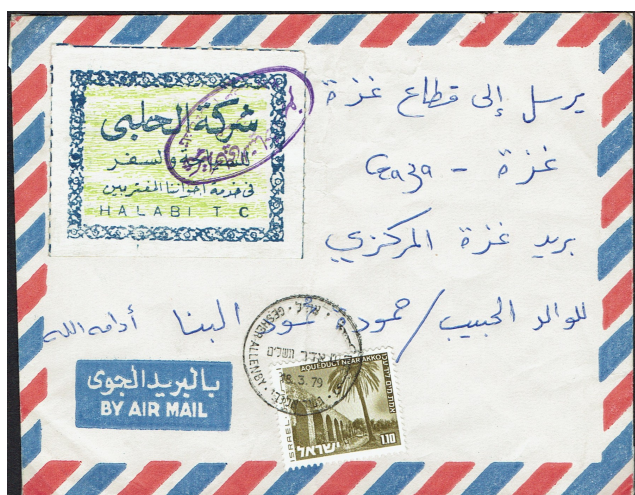 شركة الحلبي
للسياحة والسفر
في خدمة اخواننا المغتربين
HALABI T C
يرسل إلى قطاع غزة
غزة - Gaza
بريد غزة المركزي
للوالد الحبيب / حمود البنا أدامه الله
بالبريد الجوي
BY AIR MAIL
GESHER ALLENBY
18.3.79
AQUEDUCT NEAR AKKO
ISRAEL
ישראל
1.10